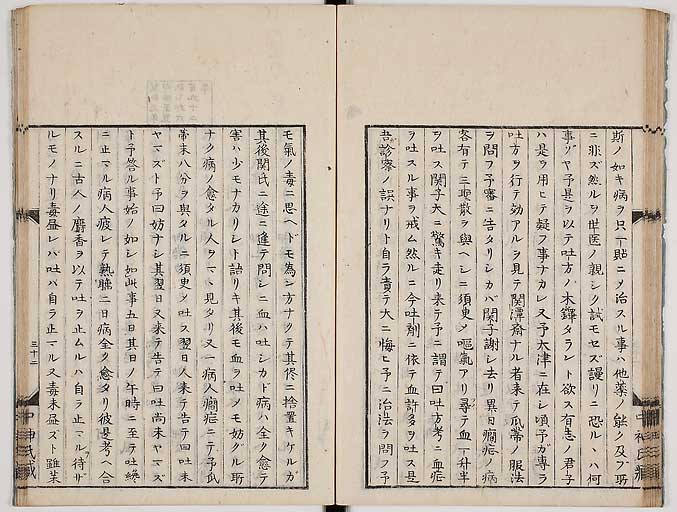 斯ノ如キ病ヲ只一貼ニヲ治スル事ハ他藥ノ能ク及ブ所
ニ非ズ然ルヲ世医ノ親シク試モセズ謾リニ恐ル丶ハ何
事ゾヤ予是ヲ以テ吐方ノ木鐸タラント欲ス有志ノ君子
ハ是ヲ用ヒテ疑フ事ナカレ又予太津ニ在シ頃予ガ專ラ
吐方ヲ行テ効アルヲ見テ関澤斎ナル者来テ瓜蒂ノ服法
ヲ問フ予審ニ告タリシカバ関子謝シ去リ異日癇症ノ病
客有テ三聖散ヲ與ヘシニ須臾メ嘔氣アリ尋テ血一升半
ヲ吐ス関子大ニ驚キ走リ来テ予ニ謂テ曰吐方考ニ血症
ヲ吐スル事ヲ戒ム然ルニ今吐劑ニ依テ血許多ヲ吐ス是
吾診察ノ誤ナリト自ラ責テ大ニ悔ヒ予ニ治法ヲ問フ予
モ氣ノ毒ニ思ヘドモ為シ方ナクテ其侭ニ捨置キケルガ
其後関氏ニ途ニ逢テ問シニ血ハ吐シカド病ハ全ク愈テ
害ハ少モナカリシト語リキ其後モ血ヲ吐メモ妨グル所
ナク病ノ愈タル人ヲマ丶見タリ又一病人癇症ニテ予瓜
蒂末八分ヲ與タルニ須臾メ吐ス翌日人来テ告テ曰吐未
ヤマズト予曰妨ナシ其翌日又来テ告テ曰吐尚未ヤマズ
ト予答ル事始ノ如シ如此事五日其日ノ午時ニ至テ吐纔
ニ止マル病人疲レテ熟睡二日病全ク愈タリ彼是考ヘ合
スルニ古人ノ麝香ヲ以テ吐ヲ止ムルハ自ラ止マル待ザ
ルモノナリ毒盡レバ吐ハ自ラ止マル又毒未盡ズト雖某
三十二
中神氏藏
中神氏藏